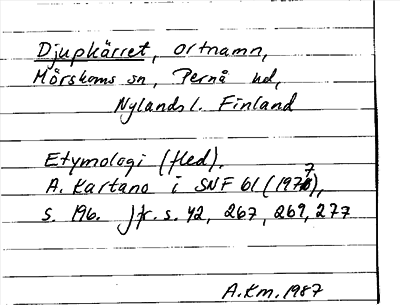 Djupkärret, ortnamn,
Mörskoms sn, Pernå hd,
Nylands l. Finland
Etymologi (fled).
A. Kartano i SNF 61 (1977),
s. 196. Jfr. s. 42, 267, 269, 277
A.Km. 1987